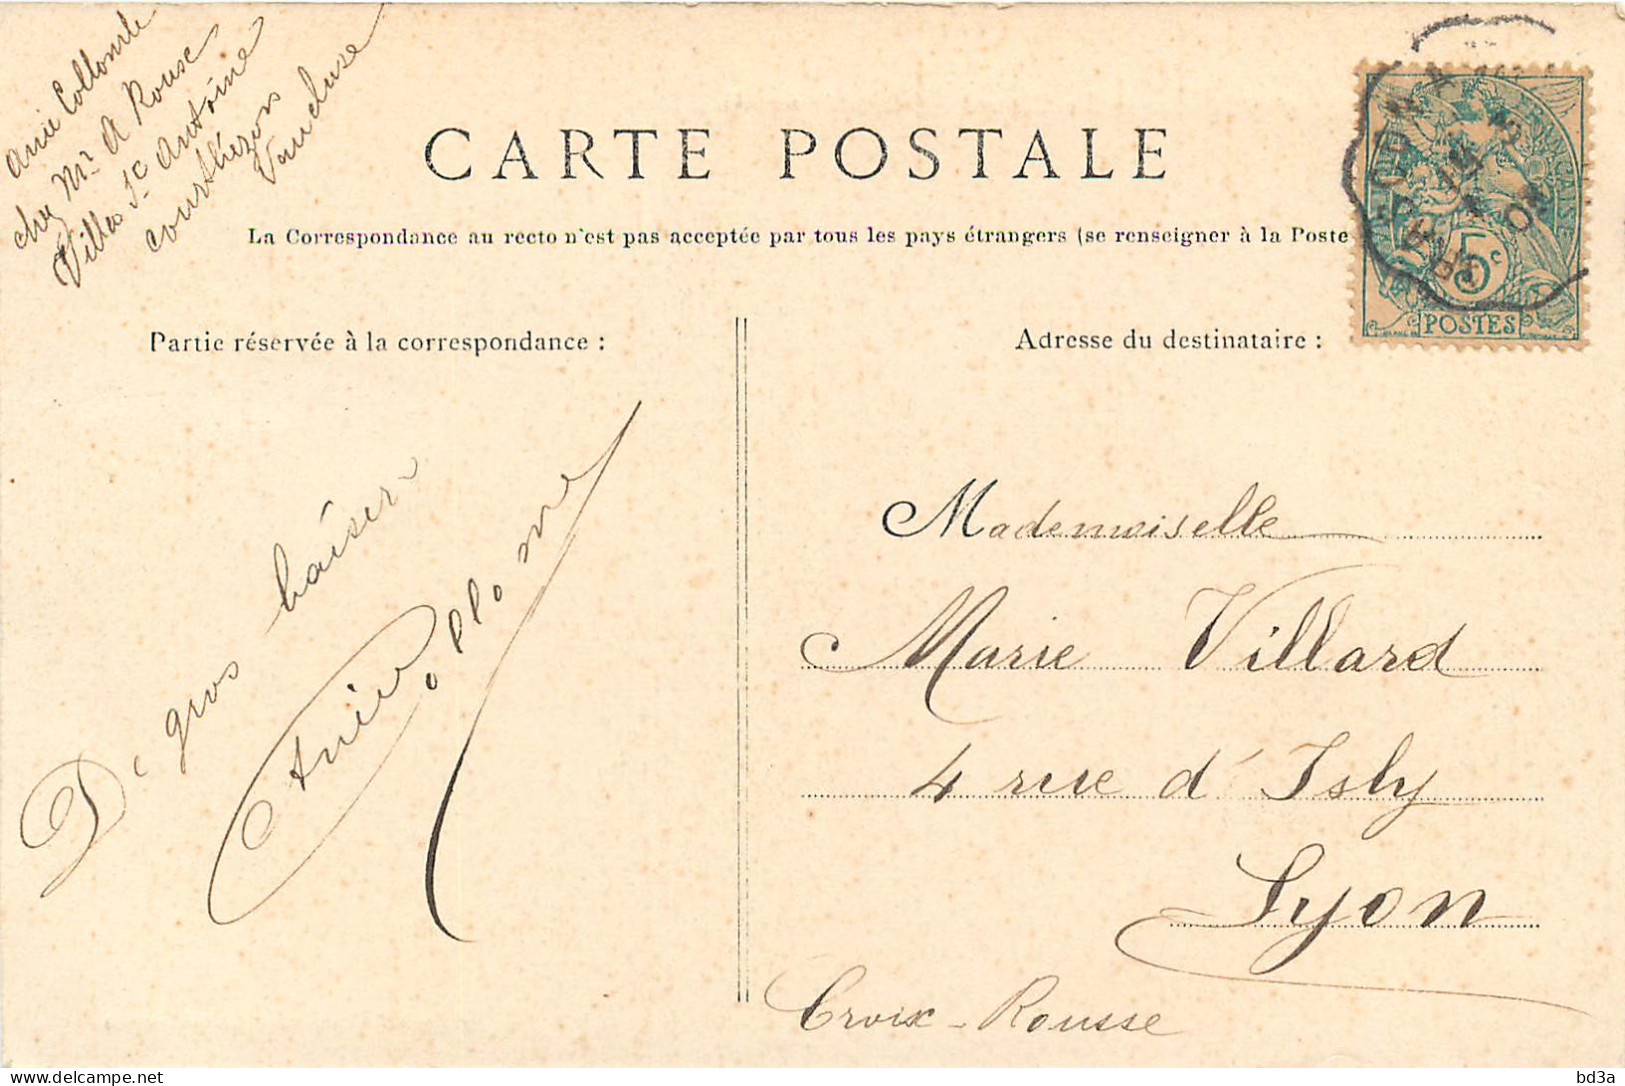 Anie Collomb
chez Mr A Rouse
Villa St Antoine
Courthézon
Vaucluse
CARTE POSTALE
La Correspondance au recto n'est pas acceptée par tous les pays étrangers (se renseigner à la Poste
Partie réservée à la correspondance :
Adresse du destinataire :
FRANÇAISE
5c
POSTES
De gros baiser
Anie Collomb
Mademoiselle
Marie Villard
4 rue d'Isly
Lyon
Croix-Rousse
bd3a